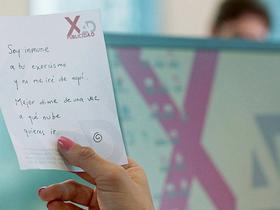 X
PUBLICIDAD
Soy inmune
a tu exorcismo
y no me iré de aquí.
Mejor dime de una vez
a qué nube
quieres ir